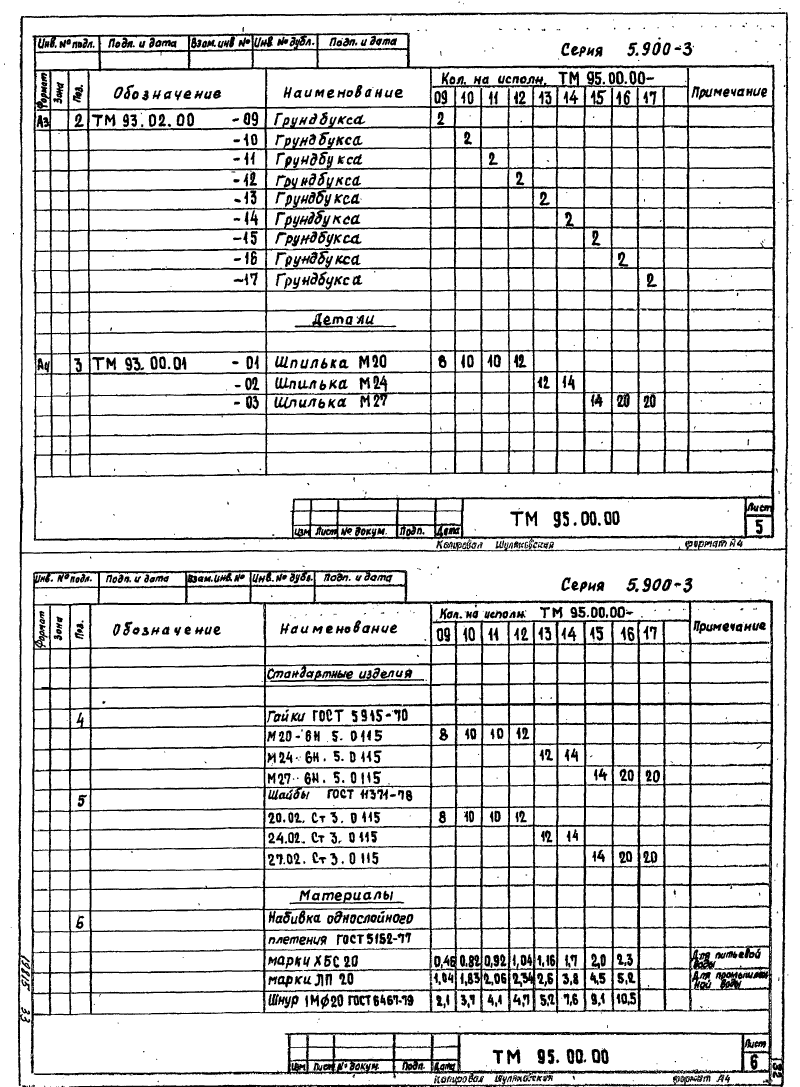 Инв. № подл. Подп. и дата Взам.инв № Инв. № дубл. Подп. и дата
Серия 5.900-3
Формат Зона Поз. Обозначение Наименование Кол. на исполн. ТМ 95.00.00- Примечание
09 10 11 12 13 14 15 16 17
А3 2 ТМ 93.02.00 -09 Грундбукса 2
-10 Грундбукса 2
-11 Грундбукса 2
-12 Грундбукса 2
-13 Грундбукса 2
-14 Грундбукса 2
-15 Грундбукса 2
-16 Грундбукса 2
-17 Грундбукса 2
Детали
А4 3 ТМ 93.00.01 -01 Шпилька М20 8 10 10 12
-02 Шпилька М24 12 14
-03 Шпилька М27 14 20 20
Изм Лист № докум. Подп. Дата
ТМ 95.00.00
Лист
5
Копировал Шуляковская формат А4
Инв. № подл. Подп. и дата Взам.инв. № Инв. № дубл. Подп. и дата
Серия 5.900-3
Формат Зона Поз. Обозначение Наименование Кол. на исполн. ТМ 95.00.00- Примечание
09 10 11 12 13 14 15 16 17
Стандартные изделия
4 Гайки ГОСТ 5915-70
М20-6Н. 5. 0115 8 10 10 12
М24-6Н. 5. 0115 12 14
М27-6Н. 5. 0115 14 20 20
5 Шайбы ГОСТ 11371-78
20.02. Ст 3. 0115 8 10 10 12
24.02. Ст 3. 0115 12 14
27.02. Ст 3. 0115 14 20 20
Материалы
6 Набивка однослойного
плетения ГОСТ 5152-77
марки ХБС 20 0,46 0,82 0,92 1,04 1,16 1,7 2,0 2,3 Для питьевой воды
марки ЛП 20 1,04 1,83 2,06 2,34 2,6 3,8 4,5 5,2 Для промышленной воды
Шнур 1МФ20 ГОСТ 6467-79 2,1 3,7 4,1 4,7 5,2 7,6 9,1 10,5
Изм Лист № докум. Подп. Дата
ТМ 95.00.00
Лист
6
Копировал Шуляковская формат А4
19815 33
32